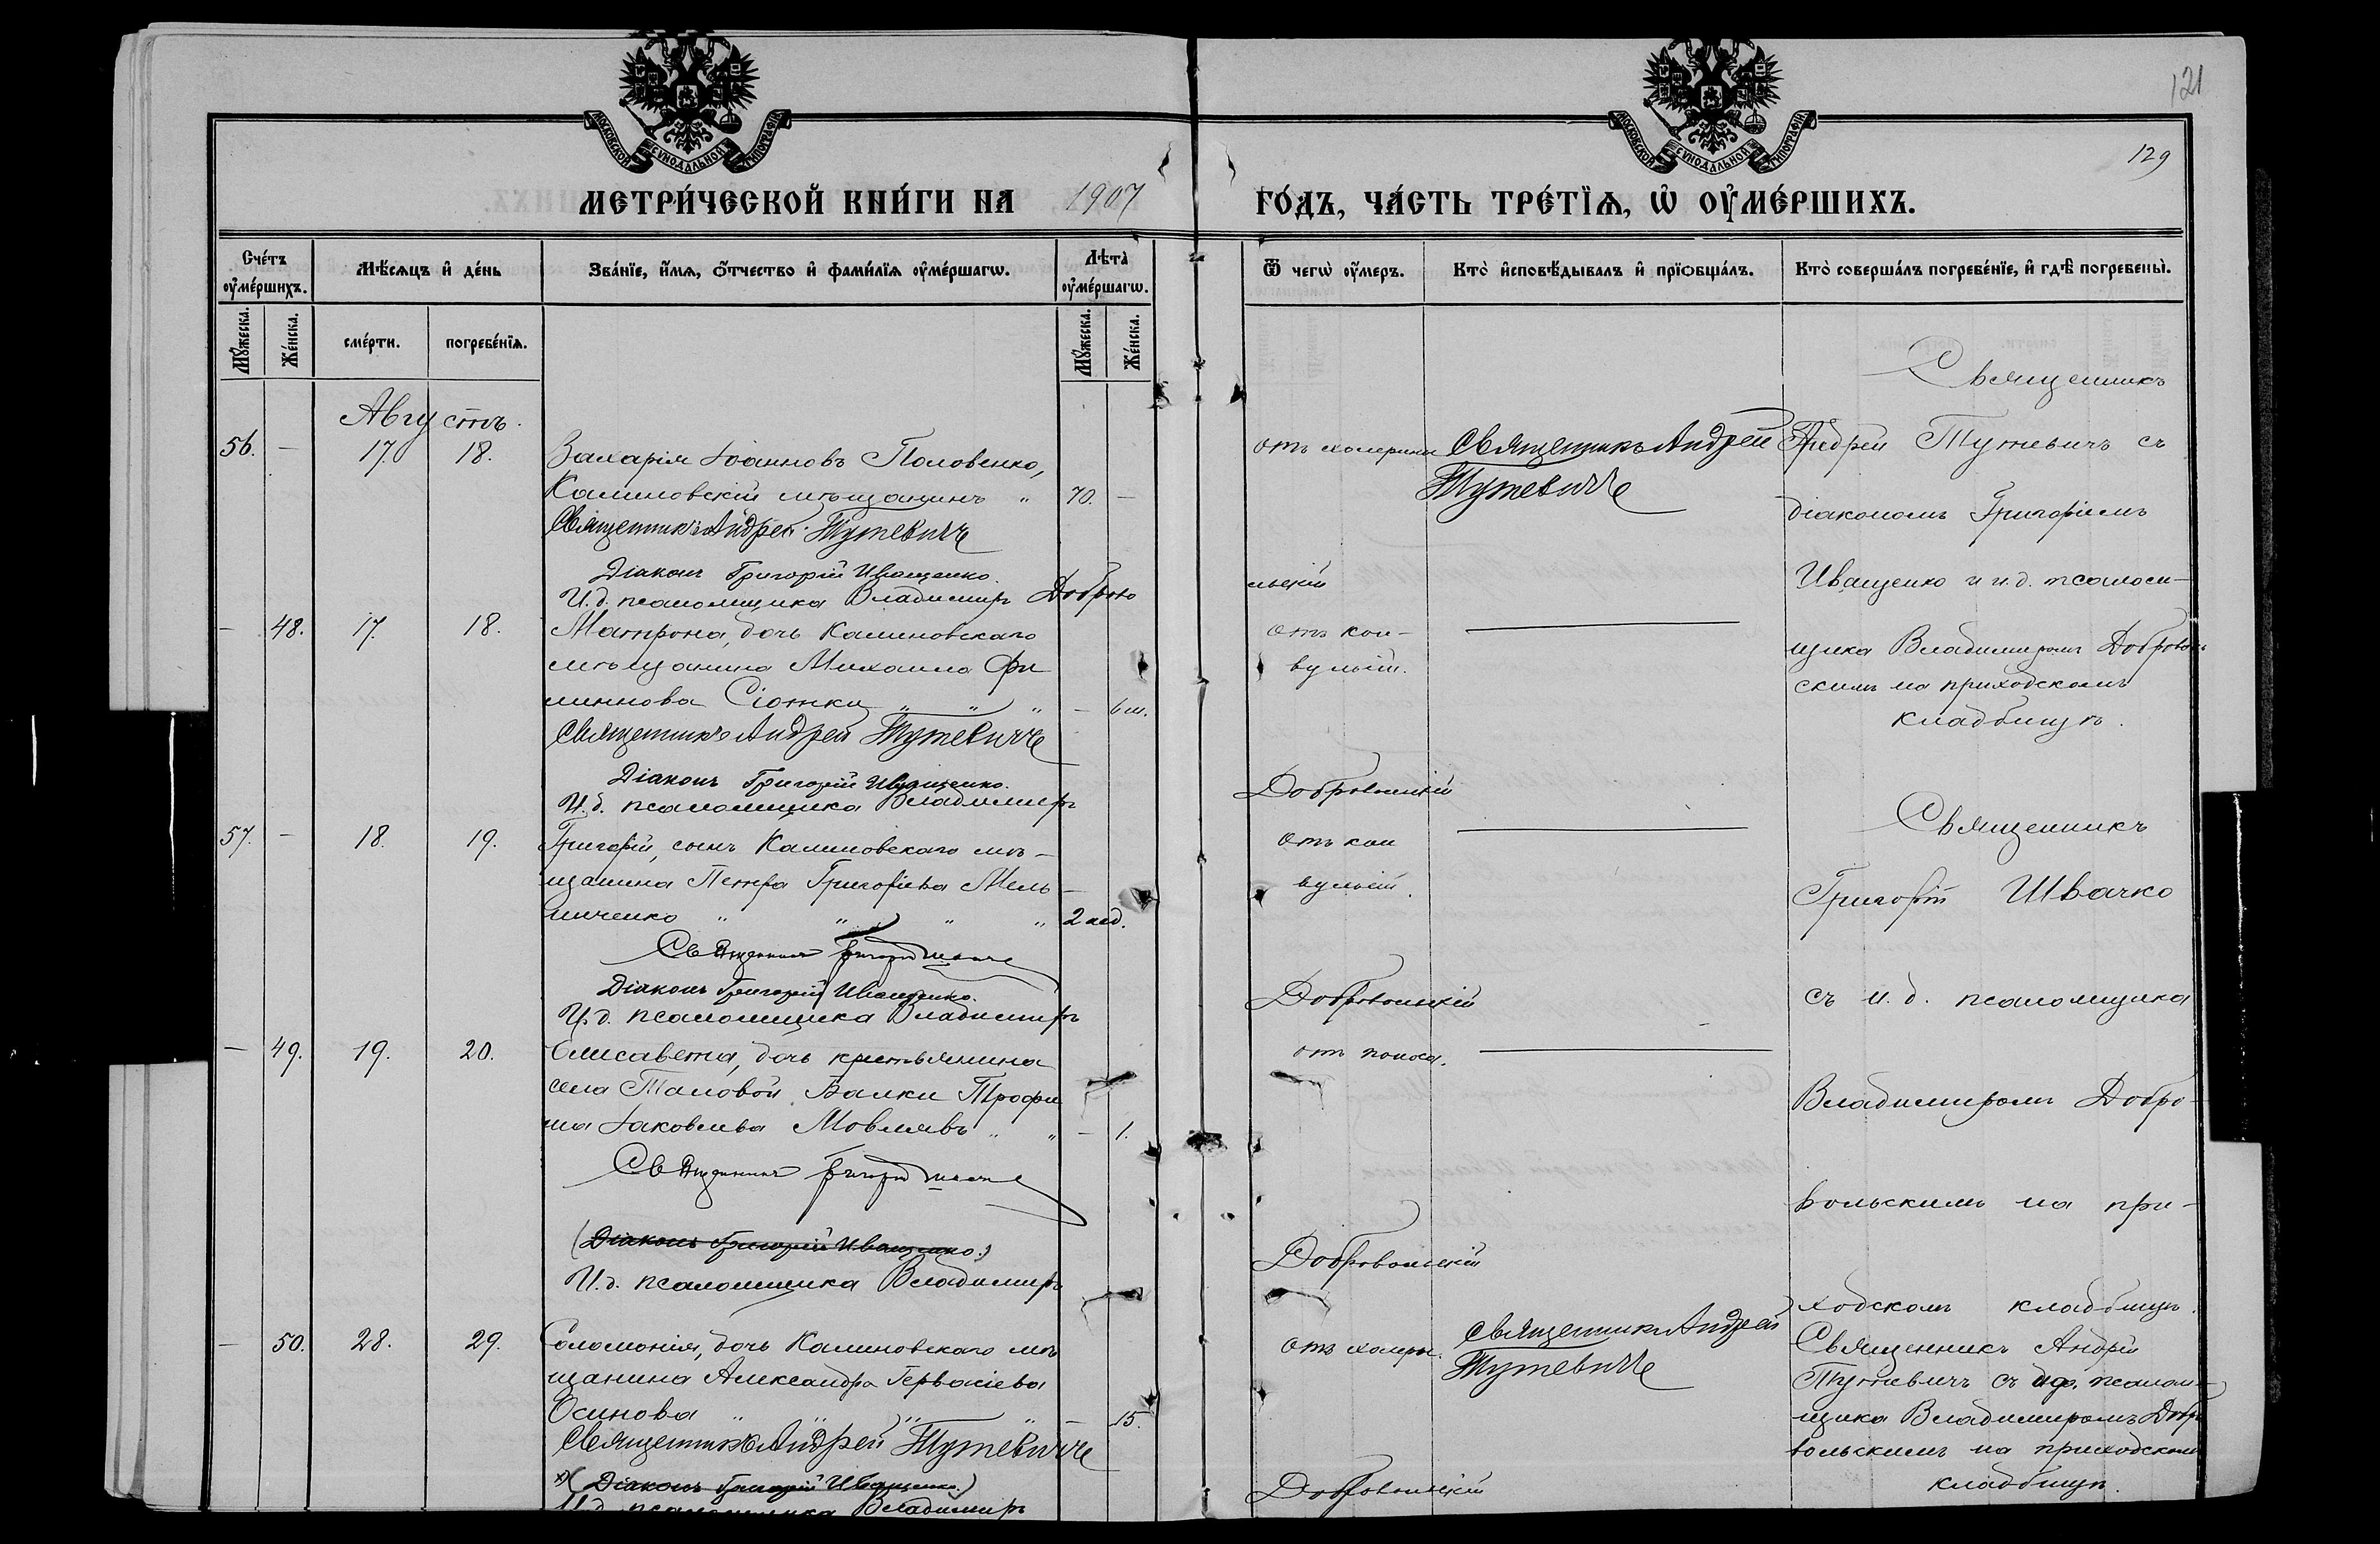 121
129
МОСКОВСКОЙ СѴНОДАЛЬНОЙ ТИПОГРАФІИ
МОСКОВСКОЙ СѴНОДАЛЬНОЙ ТИПОГРАФІИ
МЕТРИ́ЧЕСКОЙ КНИ́ГИ НА 1907 ГО́ДЪ, ЧА́СТЬ ТРЕ́ТЇѦ, Ѡ҆ ОУ҆МЕ́РШИХЪ.
Сче́тъ оу҆ме́ршихъ.
Мѣ́сѧцъ и҆ де́нь
Зва́нїе, и҆́мѧ, ѻ҆́тчество и҆ фами́лїѧ оу҆ме́ршагѡ.
Лѣта̀ оу҆ме́ршагѡ.
Ѿ чегѡ̀ оу҆́меръ.
Кто̀ и҆сповѣ́дывалъ и҆ прїѡбща́лъ.
Кто̀ соверша́лъ погребе́нїе, и҆ гдѣ̀ погребены̀.
Мꙋ́жеска.
Же́нска.
сме́рти.
погребе́нїѧ.
Мꙋ́жеска.
Же́нска.
Августъ.
56. — 17. 18. Захарія Іоанновъ Половенко,
Калиновскій мѣщанинъ " 70. —
Священникъ Андрей Тутевичъ
Діаконъ Григорій Иващенко.
И. д. псаломщика Владиміръ Доброво
льскій
отъ холерины
Священникъ Андрей
Тутевичъ
Священникъ
Андрей Тутевичъ съ
діакономъ Григоріемъ
Иващенко и и. д. псалом-
щика Владиміромъ Доброволь
скимъ на приходскомъ
кладбищѣ.
— 48. 17. 18. Матрона, дочь Калиновскаго
мѣщанина Михаила Фи
липпова Сіотки " " " — 6 м.
Священникъ Андрей Тутевичъ
Діаконъ Григорій Иващенко.
И. д. псаломщика Владиміръ
Добровольскій
отъ кон-
вульсій.
57. — 18. 19. Григорій, сынъ Калиновскаго мѣ-
щанина Петра Григорьева Мель-
ниченко " " " " 2 нед.
Священникъ Григорій
Діаконъ Григорій Иващенко.
И. д. псаломщика Владиміръ
Добровольскій
отъ кон
вульсій.
Священникъ
Григорій Швачко
съ и. д. псаломщика
Владиміромъ Добро-
вольскимъ на при-
ходскомъ кладбищѣ.
— 49. 19. 20. Елисавета, дочь крестьянина
села Таловой Балки Трофи
ма Іаковлева " " — 1.
Священникъ Григорій
(Діаконъ Григорій Иващенко.)
И. д. псаломщика Владиміръ
Добровольскій
отъ поноса.
— 50. 28. 29. Соломонія, дочь Калиновскаго мѣ
щанина Александра Гервасіева
Осипова " " " " — 15.
Священникъ Андрей Тутевичъ
х) (Діаконъ Григорій Иващенко.)
И. д. псаломщика Владиміръ
Добровольскій
отъ холеры.
Священникъ Андрей
Тутевичъ
Священникъ Андрей
Тутевичъ съ и. д. псалом-
щика Владиміромъ Добро
вольскимъ на приходскомъ
кладбищѣ.